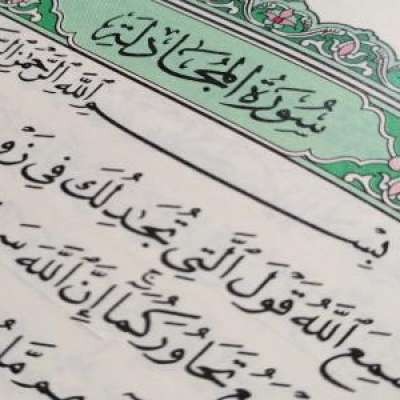 سُورَةُ المُجَادلَة
بِسْمِ ٱللَّهِ ٱلرَّحْمَٰنِ
سَمِعَ ٱللَّهُ قَوْلَ ٱلَّتِى تُجَٰدِلُكَ فِى
تَحَاوُرَكُمَآ إِنَّ ٱللَّهَ